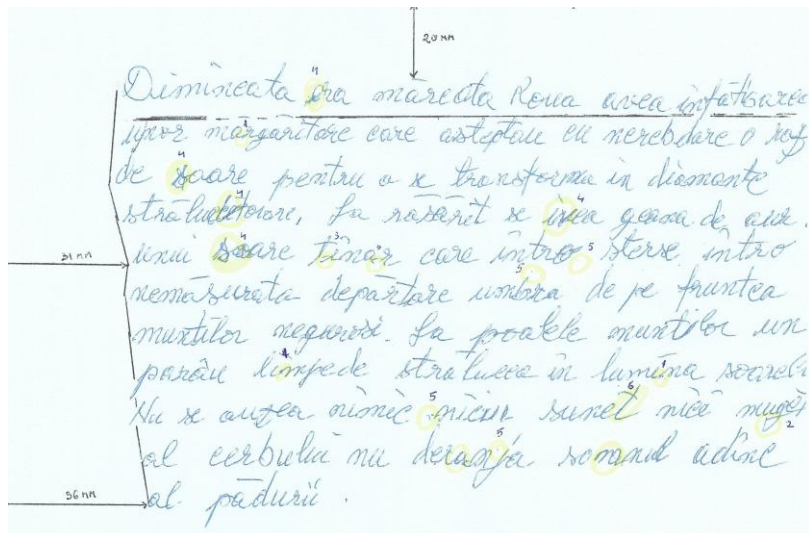 20 mm
Dimineata era mareata Roua avea infatisarea
unor margaritare care asteptau cu nerebdare o raz
de soare pentru a se transforma in diamante
stralucitoare. La rasarit se ivea geana de aur.
31 mm unui soare tinar care intro sterse intro
nemasurata departare umbra de pe fruntea
muntilor negurosi. La poalele muntilor un
parâu limpede stralucea in lumina soarelu
Nu se auzea nimic niciun sunet nici muget
al cerbului nu deranja somnul adinc
56 mm al pădurii.